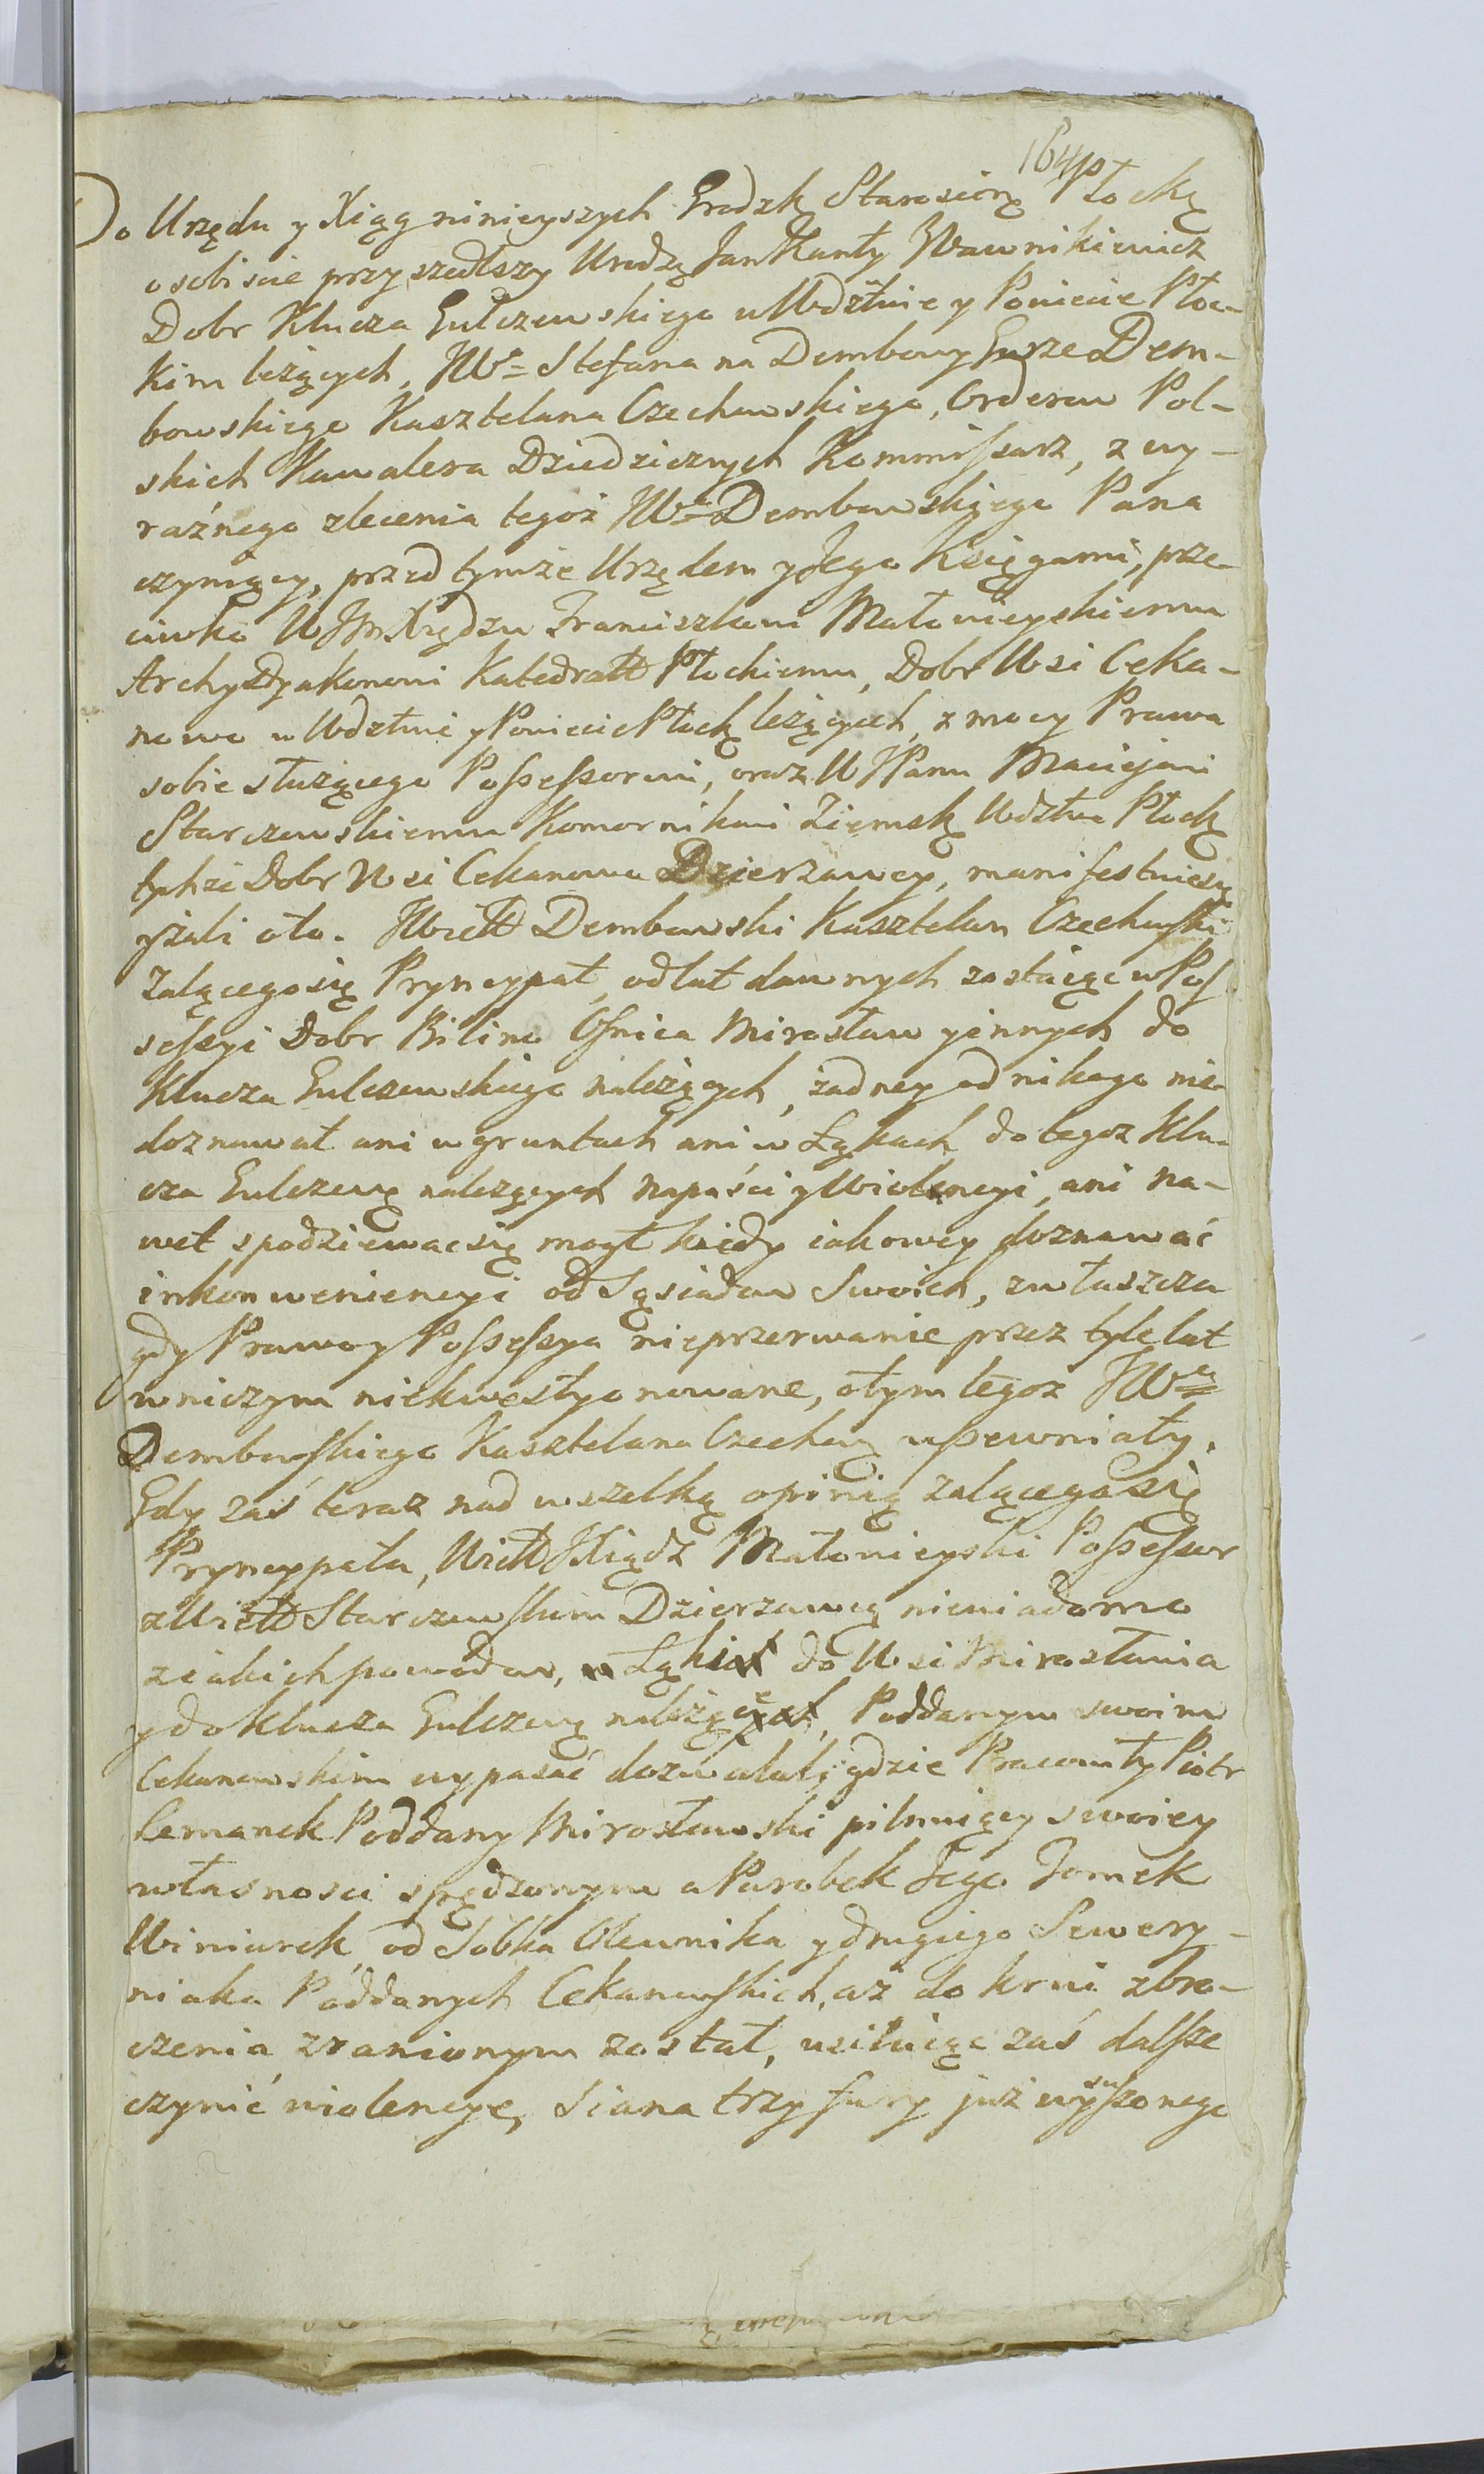 164
Do Urzędu y Xiąg ninieyszych Grodzk Starościń Płockę
osobiscie przyszedłszy Urodz Jan Kanty Wawnikiewicz
Dobr Klucza Gulczewskiego w Wdztwie y Powiecie Płoc-
kim leżących, JWo Stefana na Dembowy Gurze Dem-
bowskiego Kasztelana Czechowskiego, Orderow Pol-
skich Kawalera Dziedzicznych Kommissarz, z wy-
raźnego zlecenia tegoż JWo Dembowskiego Pana
czyniący, przed tymże Urzędem y Jego Księgami, prze-
ciwko WJmXiędzu Franciszkowi Małowieyskiemu
Archydyakonowi Katedrall Płockiemu, Dobr Wsi Ceka-
nowo w Wdztwie y Powiecie Płock leżących, z mocy Prawa
sobie służącego Possessorowi, oraz WJPanu Maciejowi
Starczewskiemu Komornikowi Ziemsk Wdztwa Płock
tychże Dobr Wsi Cekanowa Dzierzawcy, manifestuie się
y żali oto. JWiell Dembowski Kasztelan Czechowski
Zalącego się Pryncypał, od lat dawnych zostaiąc w Pos
sessyi Dobr Bilino Ośnica Mirosław y innych do
Klucza Gulczewskiego należących, żadney od nikogo nie-
doznawał ani w gruntach ani w Łąkach do tegoz Klu-
cza Gulczewę należących napaści y Wiolencyi, ani na-
wet spodziewac się mogł kiedy iakowey doznawać
inkonweniencyi od Sąsiadow Swoich, zwłaszcza
gdy Prawo y Possessya nieprzerwanie przez tyle lat
w niczym niekwestyonowane, o tym tegoz JWo
Dembowskiego Kasztelana Czechowę upewniały.
Gdy zaś teraz nad wszelką opinią żalącego się
Pryncypała, Wiell JXiądz Małowieyski Possessor
z Wiell Starczewskim Dzierzawcą niewiadomo
z iakich powodow, w Łąki do Wsi Mirosławia
y do klucza Gulczewę należące, Poddanym swoim
Cekanowskim wypasać dozwalali, gdzie Pracowity Piotr
Lemanek Poddany Mirosławski pilnuiący swoiey
własnosci spędzonym a Parobek Jego Tomek
Winiarek, od Sobka Olewnika y drugiego Sewery-
niaka Poddanych Cekanowskich, aż do krwi zbro-
czenia zranionym został, usiłuiąc zaś dalsze
czynić wiolencye, Siana trzy fury już wysuszonego